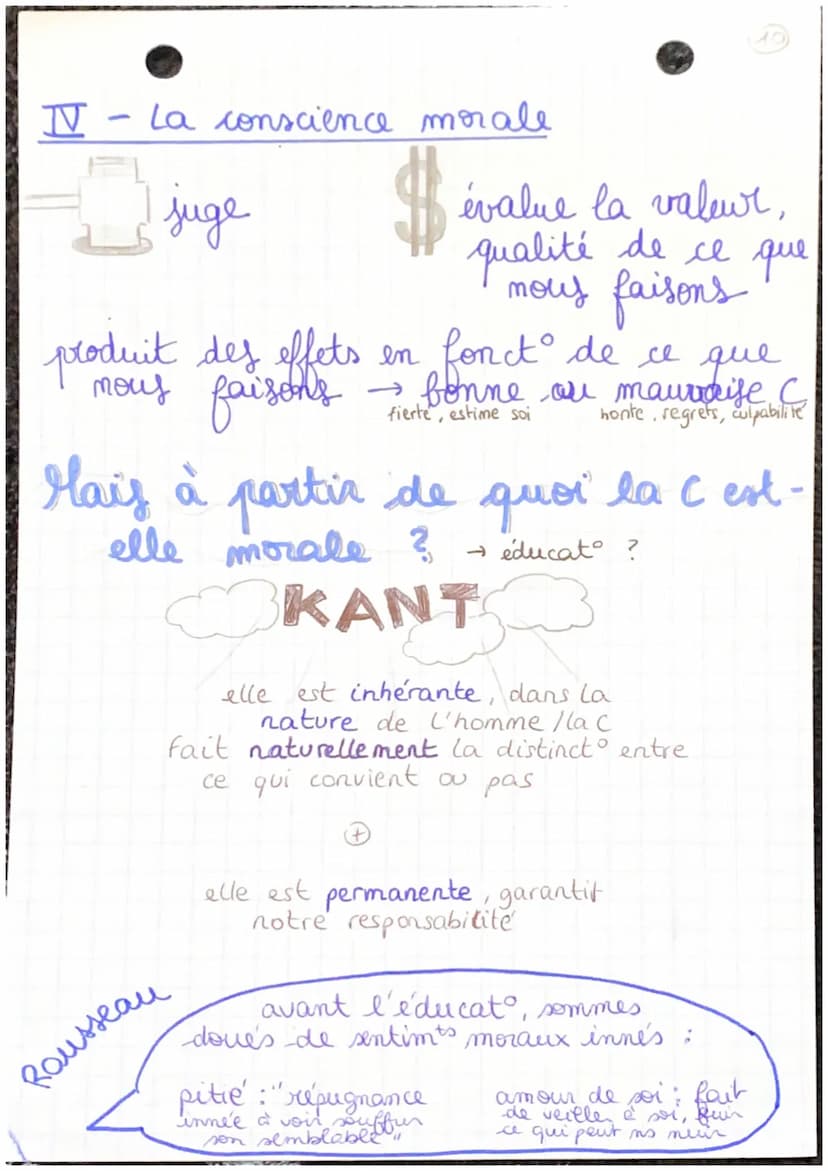 10
IV - La conscience morale
juge
évalue la valeur,
qualité de ce que
nous faisons
produit des effets en fonct° de ce que
nous faisons → bonne ou mauvaise C
fierté, estime soi honte, regrets, culpabilité
Mais à partir de quoi la C est-
elle morale ? → éducat° ?
KANT
elle est inhérante, dans la
nature de l'homme / la C
fait naturellement la distinct° entre
ce qui convient ou pas
+
elle est permanente, garantit
notre responsabilité
Rousseau
avant l'éducat°, sommes
doués de sentimts moraux innés :
pitié : "répugnance
innée à voir souffrir
son semblable"
amour de soi : fait
de veiller à soi, fuir
ce qui peut ns nuire